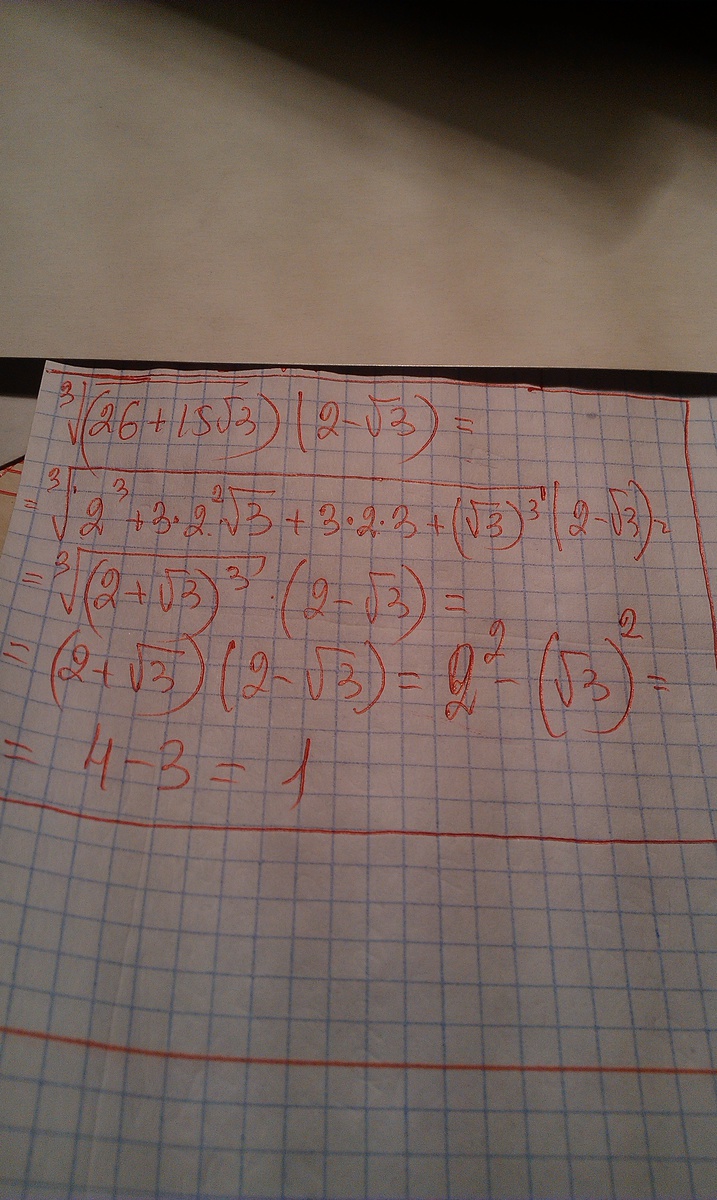 ∛(26+15√3) (2-√3) =
= ∛2³+3·2·²√3 + 3·2·3 + (√3)³ (2-√3) =
= ∛(2+√3)³ · (2-√3) =
= (2+√3) (2-√3) = 2² - (√3)² =
= 4-3 = 1